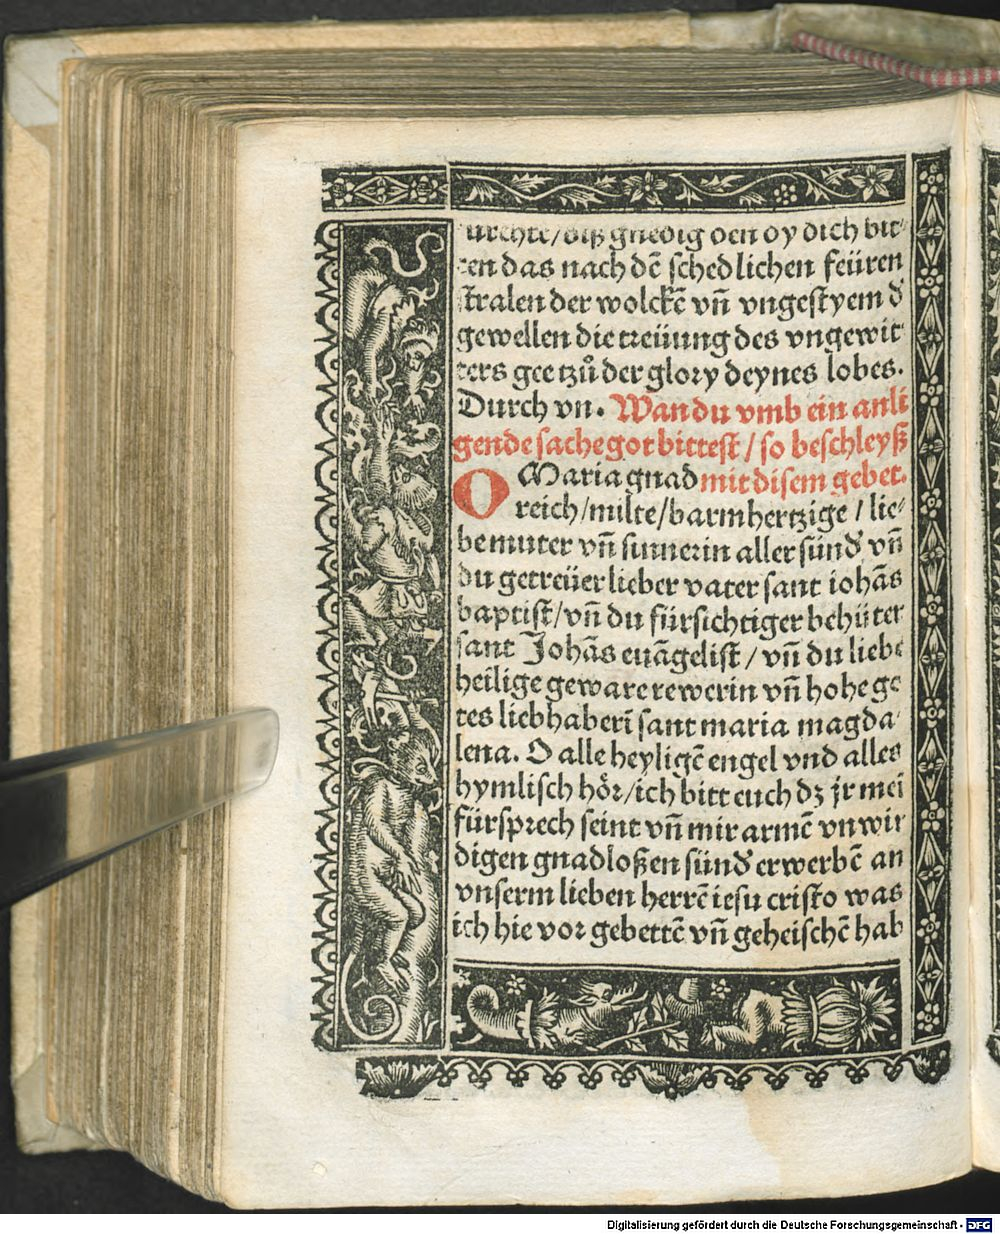 urchte/biß gnedig den dy dich bit⸗
ten das nach dē schedlichen feüren
stralen der wolckē vñ vngestyem d̕
gewellen die treüung des vngewit⸗
ters gee tzů der glory deynes lobes.
Durch vn. Wan du vmb ein anli
gende sache got bittest/so beschleyß
O Maria gnad mit disem gebet.
reich/milte/barmhertzige/lie⸗
be muter vñ sunerin aller sünd̕ vñ
du getreüer lieber vater sant iohās
baptist/vñ du fürsichtiger behüter
sant Johās euāgelist/vñ du liebe
heilige geware rewerin vñ hohe go
tes liebhaberī sant maria magda⸗
lena. O alle heyligē engel vnd alles
hymlisch hör/ich bitt euch dz jr meī
fürsprech seint vñ mir armē vnwir
digen gnadloßen sünd̕ erwerbē an
vnserm lieben herrē iesu cristo was
ich hie vor gebettē vñ geheischē hab
Digitalisierung gefördert durch die Deutsche Forschungsgemeinschaft - DFG